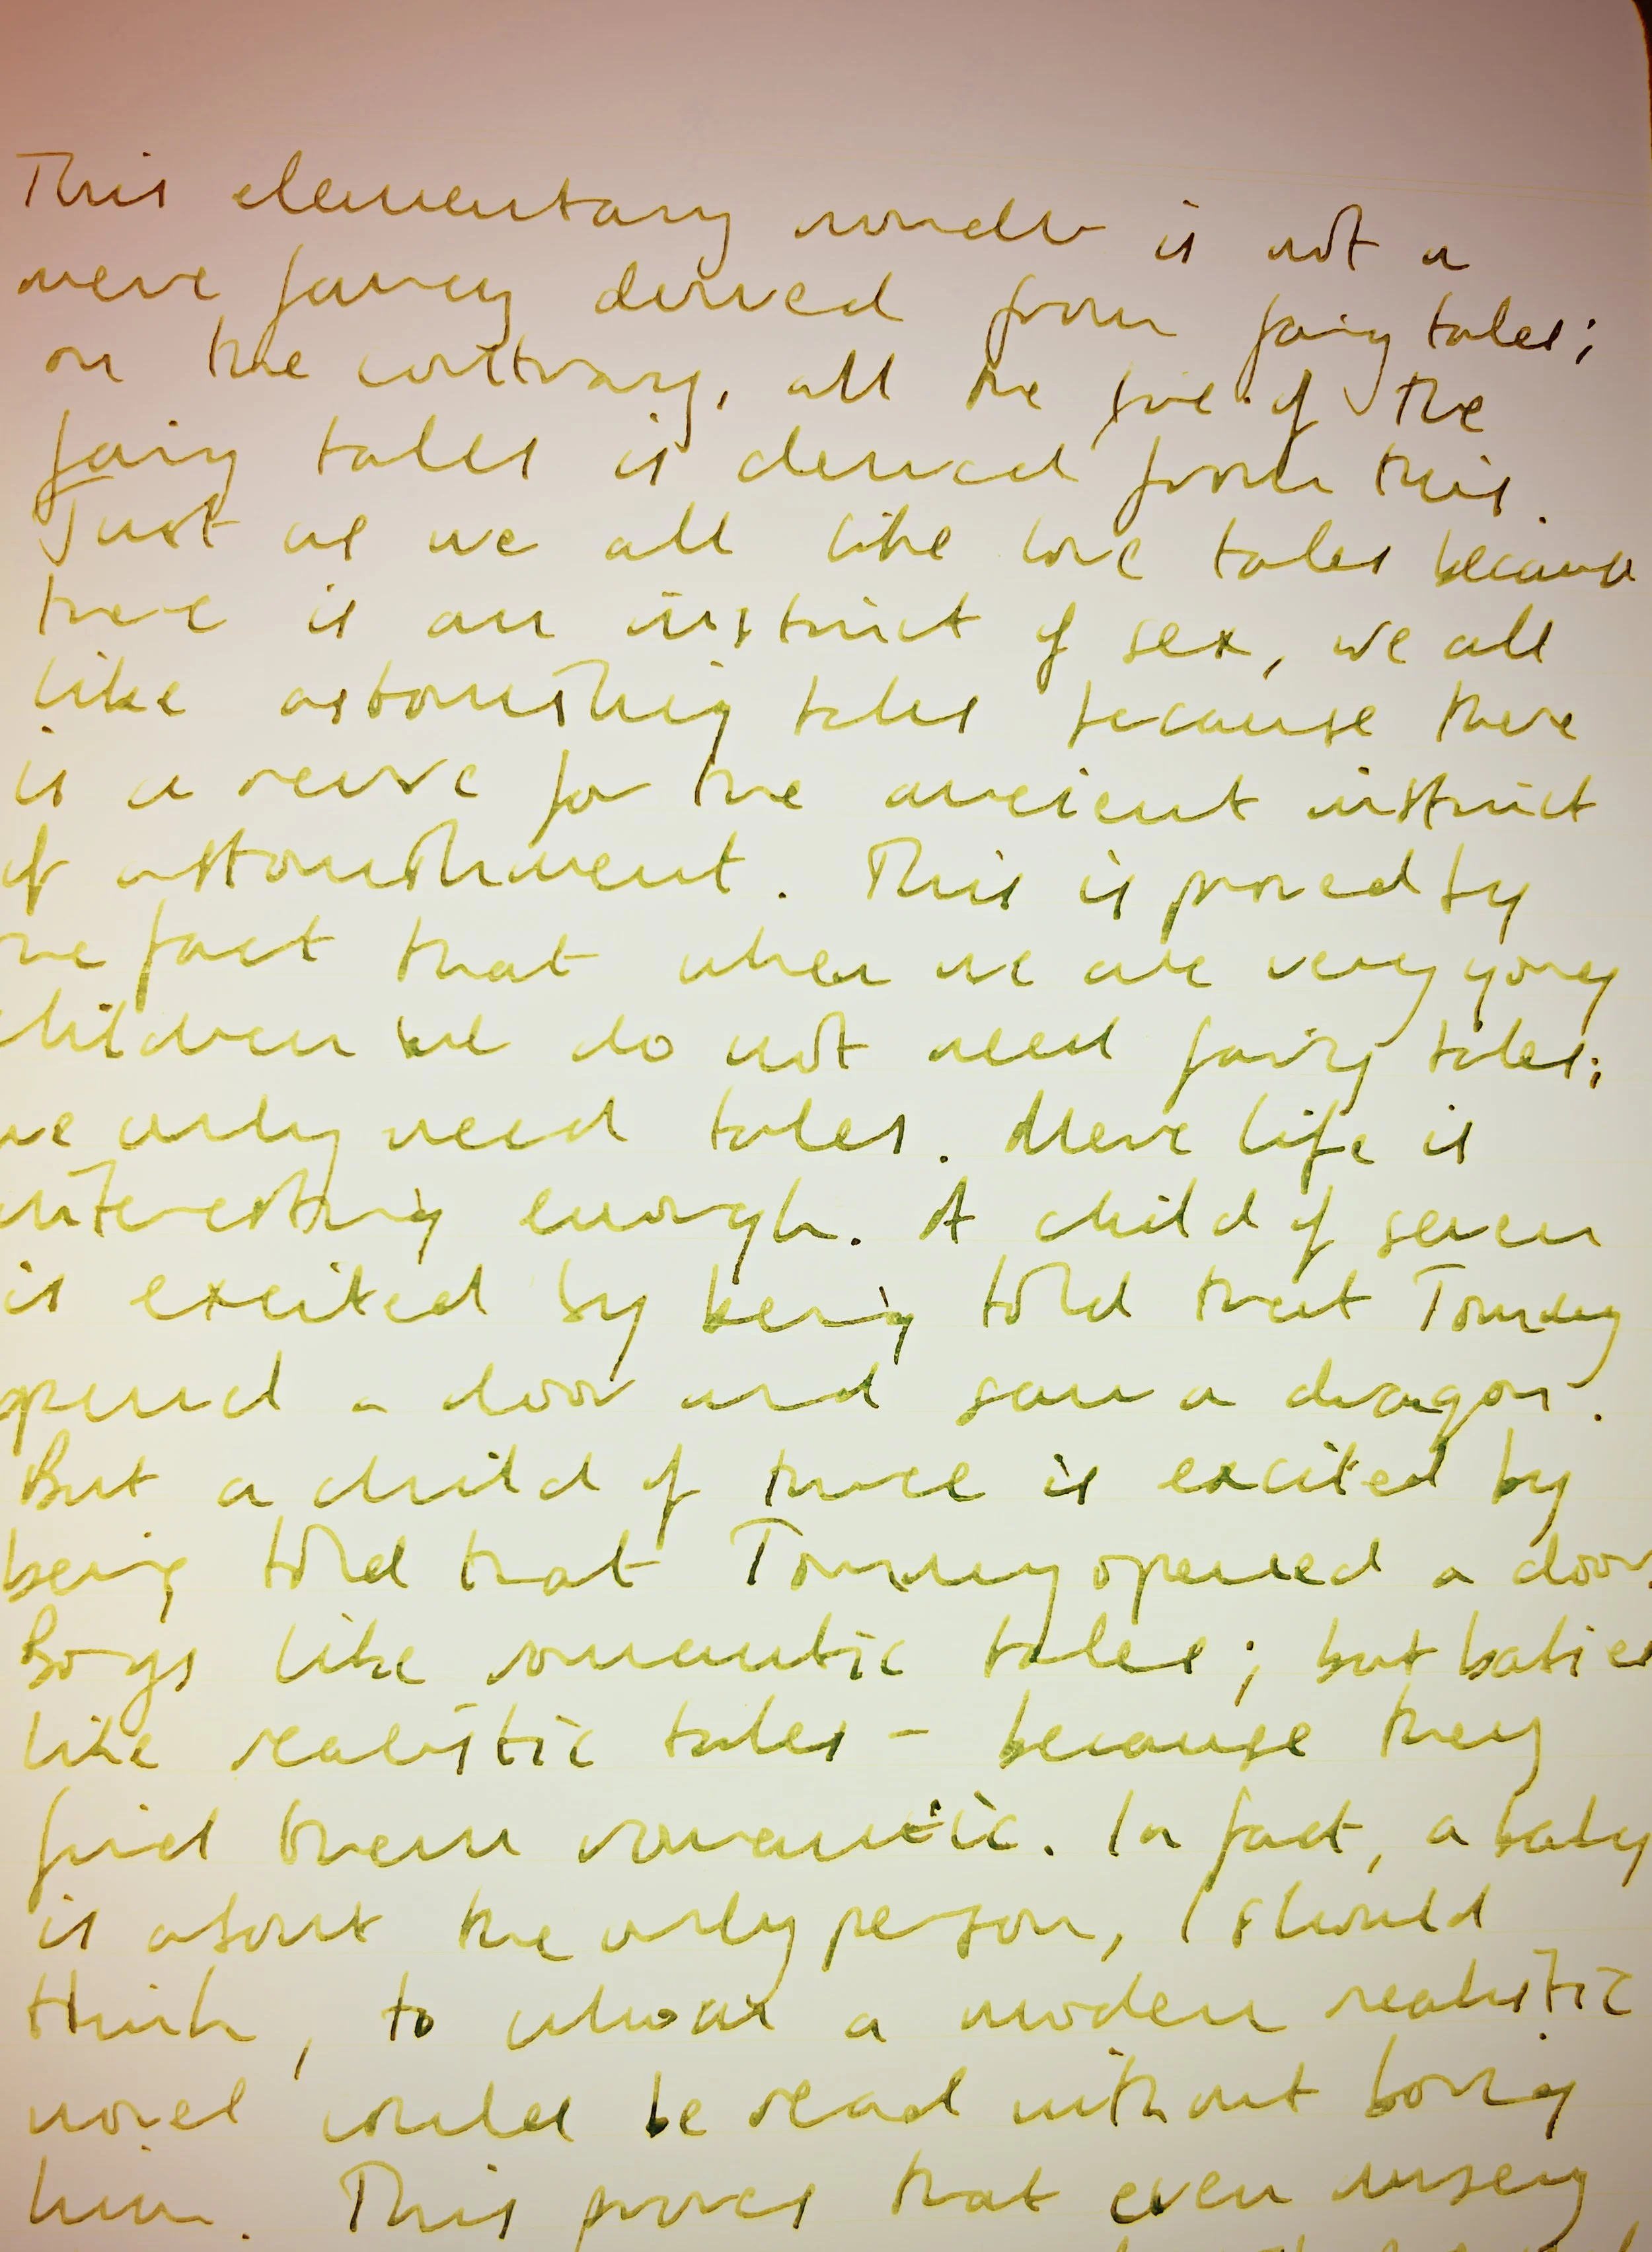 This elementary wonder is not a
mere fancy derived from fairy tales;
on the contrary, all the fire of the
fairy tales is derived from this.
Just as we all like love tales because
there is an instinct of sex, we all
like astonishing tales because there
is a nerve for the ancient instinct
of astonishment. This is proved by
the fact that when we are very young
children we do not need fairy tales;
we only need tales. Mere life is
interesting enough. A child of seven
is excited by being told that Tommy
opened a door and saw a dragon.
But a child of three is excited by
being told that Tommy opened a door.
Boys like romantic tales; but babies
like realistic tales - because they
find them romantic. In fact, a baby
is about the only person, I should
think, to whom a modern realistic
novel could be read without boring
him. This proves that even nursery